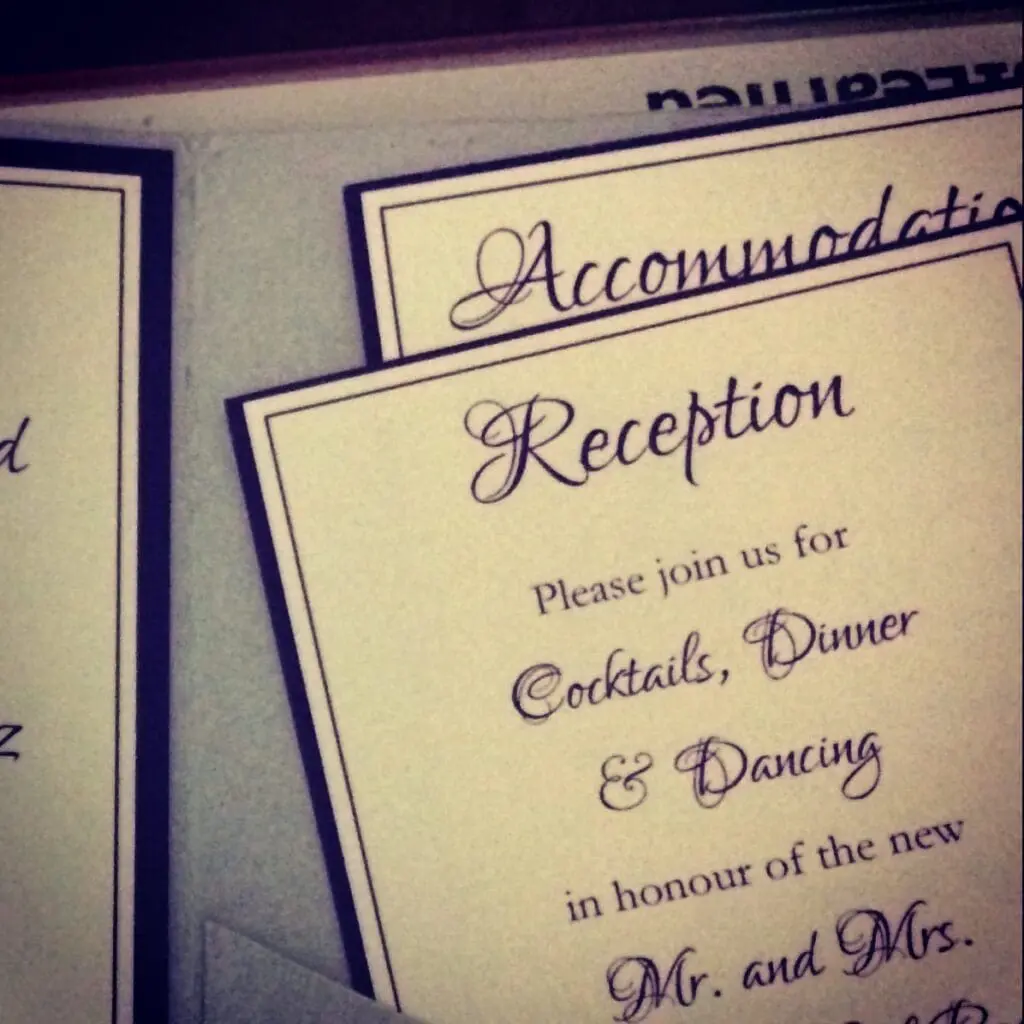 d
z
Accommodatio
Reception
Please join us for
Cocktails, Dinner
& Dancing
in honour of the new
Mr. and Mrs.